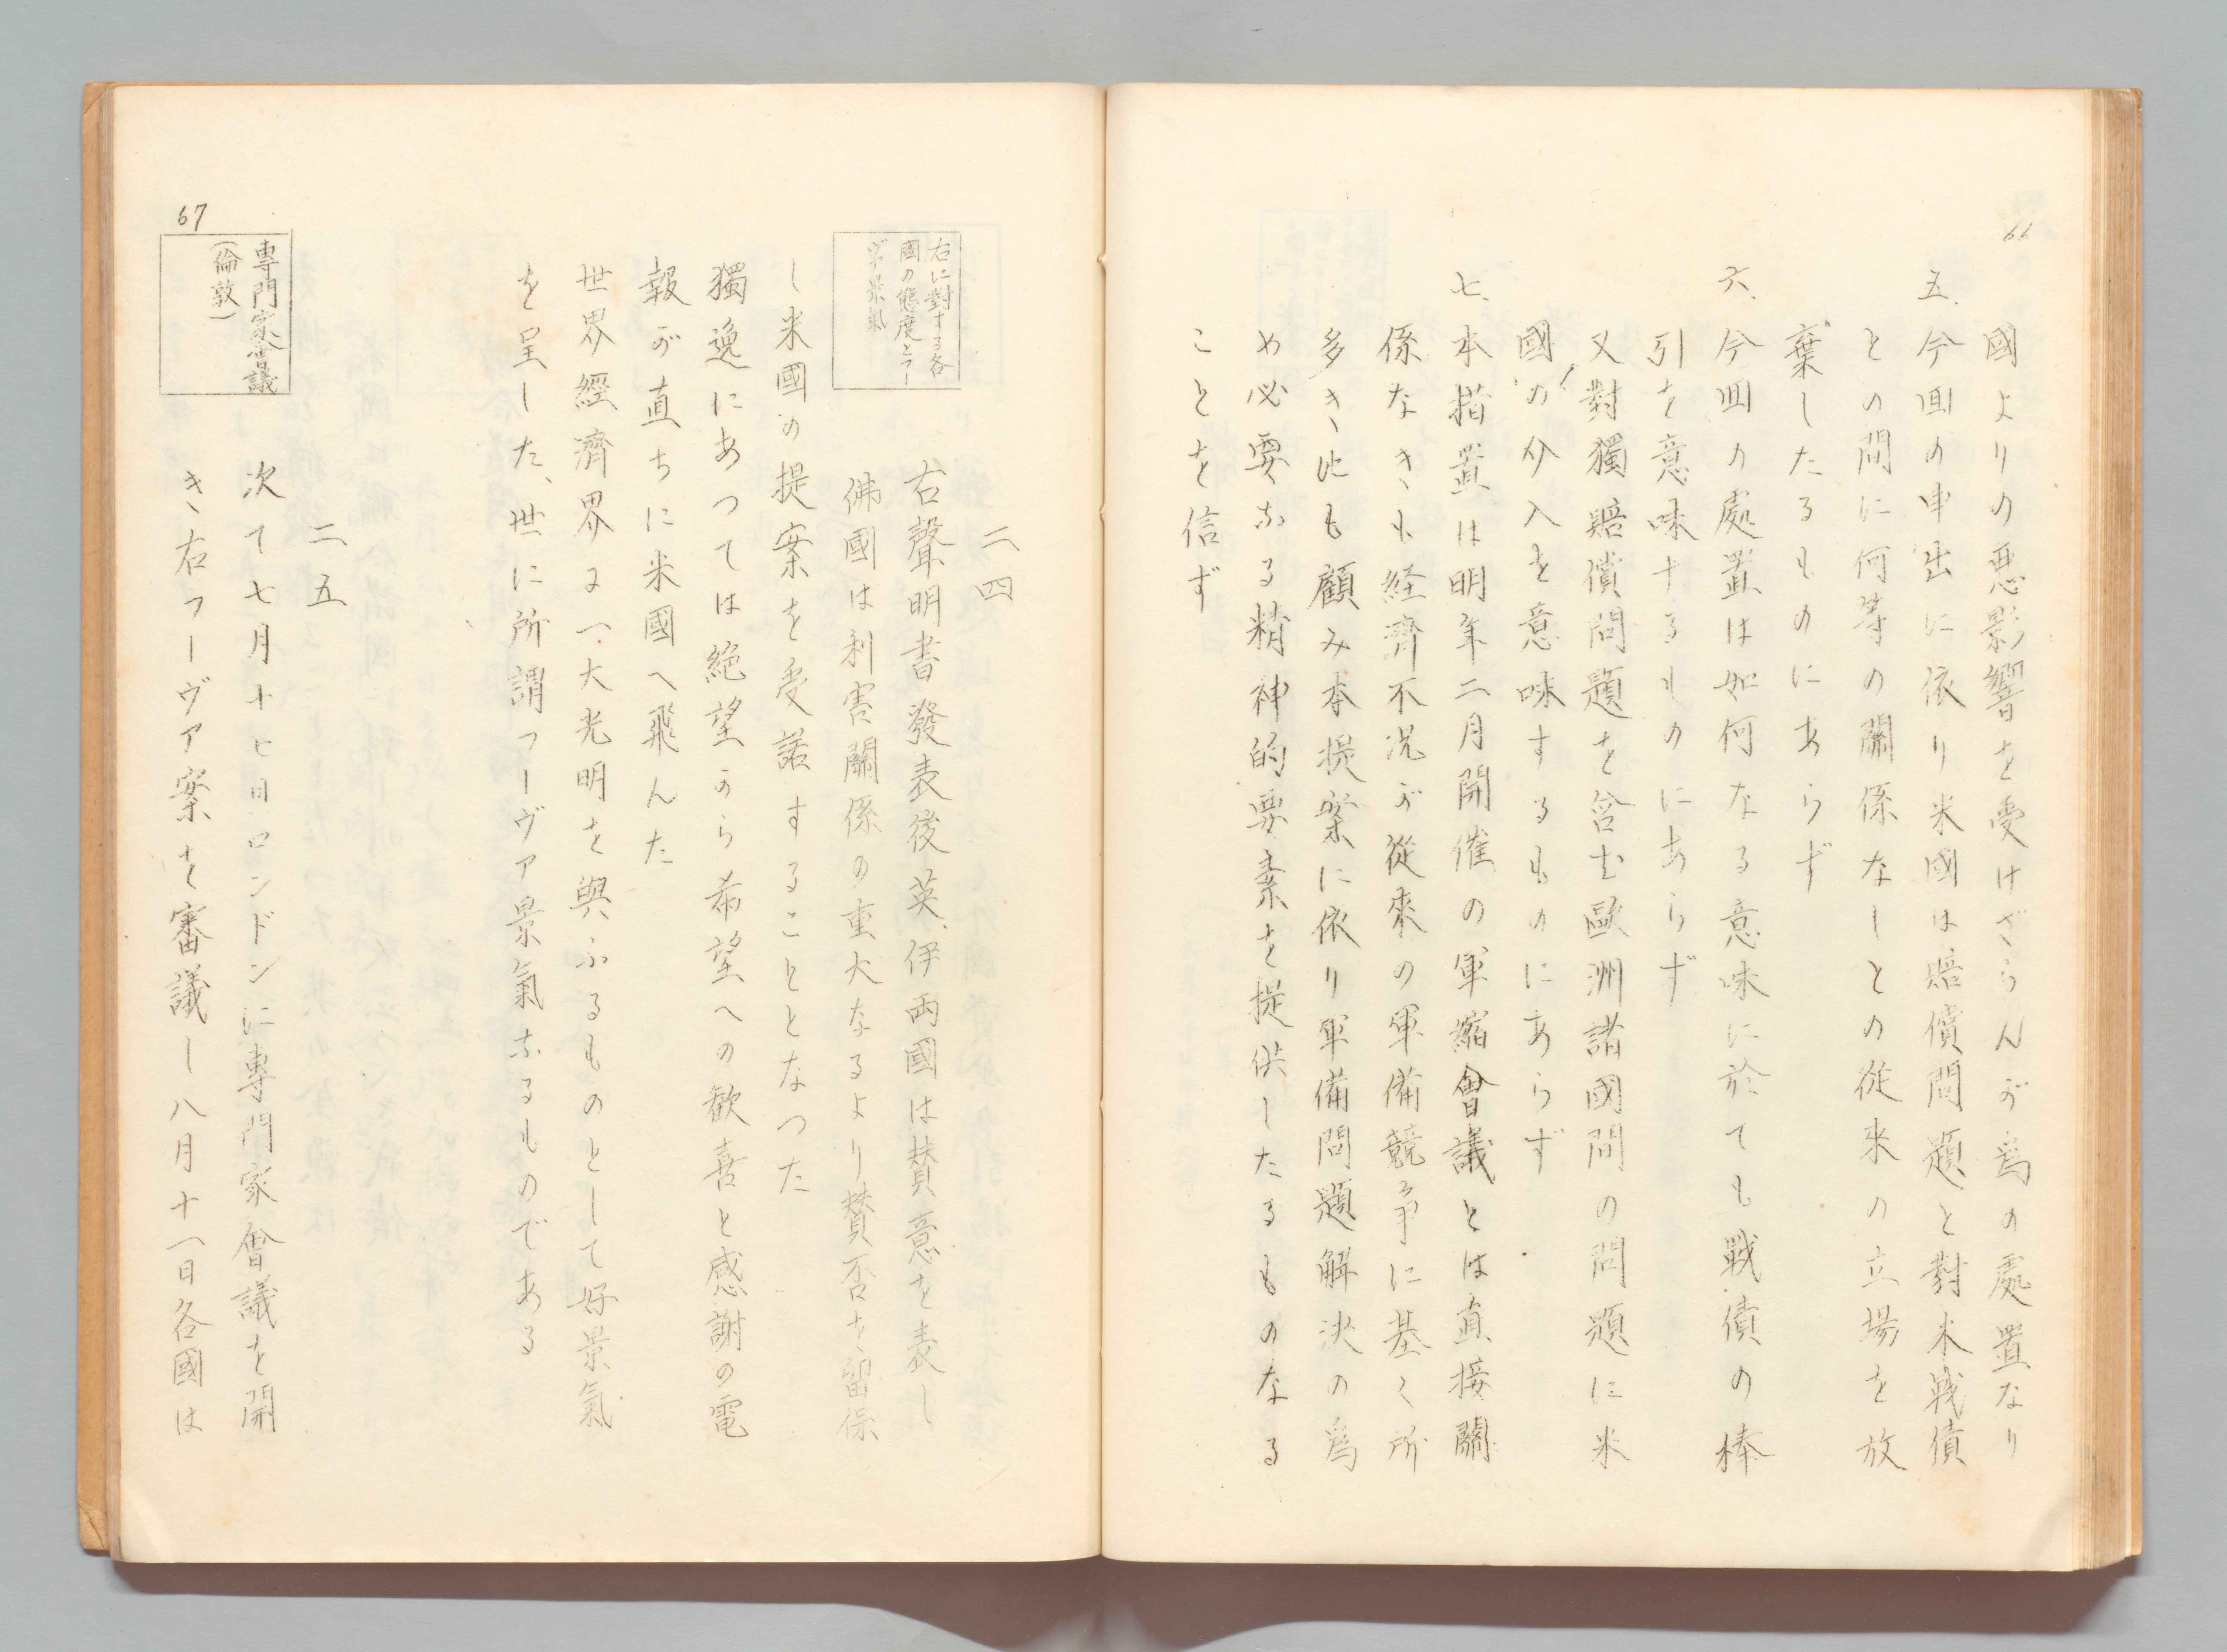 66
國よりの悪影響を受けざらんが爲の處置なり
五、今回の申出に依り米國は賠償問題と對米戦債
との間に何等の關係なしとの従来の立場を放
棄したるものにあらず
六、今回の處置は如何なる意味に於ても戦債の棒
引を意味するものにあらず
又對獨賠償問題を含む歐洲諸國間の問題に米
國の介入を意味するものにあらず
七、本措置は明年二月開催の軍縮會議とは直接關
係なきも、経濟不況が從來の軍備競争に基く所
多き此も顧み本提案に依り軍備問題解決の爲
め必要なる精神的要素を提供したるものなる
ことを信ず
二四
右に對する各
國の態度とフー
ヴァ景氣
右聲明書發表後英、伊両國は賛意を表し
佛國は利害關係の重大なるより賛否を留保
し米國の提案を受諾することとなつた
獨逸にあつては絶望から希望への歓喜と感謝の電
報が直ちに米國へ飛んた
世界經濟界に一大光明を與ふるものとして好景氣
を呈した、世に所謂フーヴァ景氣なるものである
二五
67
専門家會議
(倫敦)
次て七月十七日ロンドンに專門家會議を開
き、右フーヴァ案を審議し八月十一日各國は